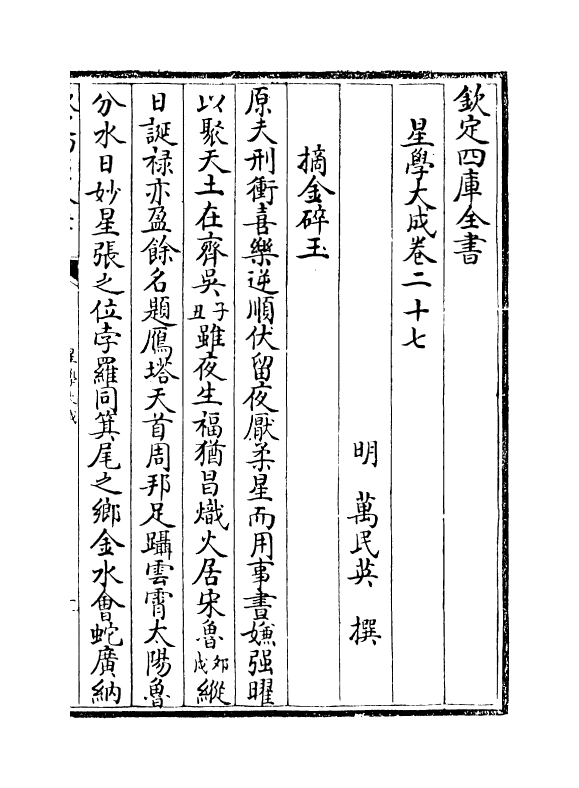 欽定四庫全書
星學大成卷二十七
明 萬民英 撰
摘金碎玉
原夫刑衝喜樂逆順伏留夜厭柔星而用事晝嫌强曜
以聚天土在齊吳子丑雖夜生福猶昌熾火居宋魯卯戌縱
日誕禄亦盈餘名題鴈塔天首周邦足躡雲霄太陽魯
分水日妙星張之位孛羅同箕尾之鄉金水㑹蛇廣納